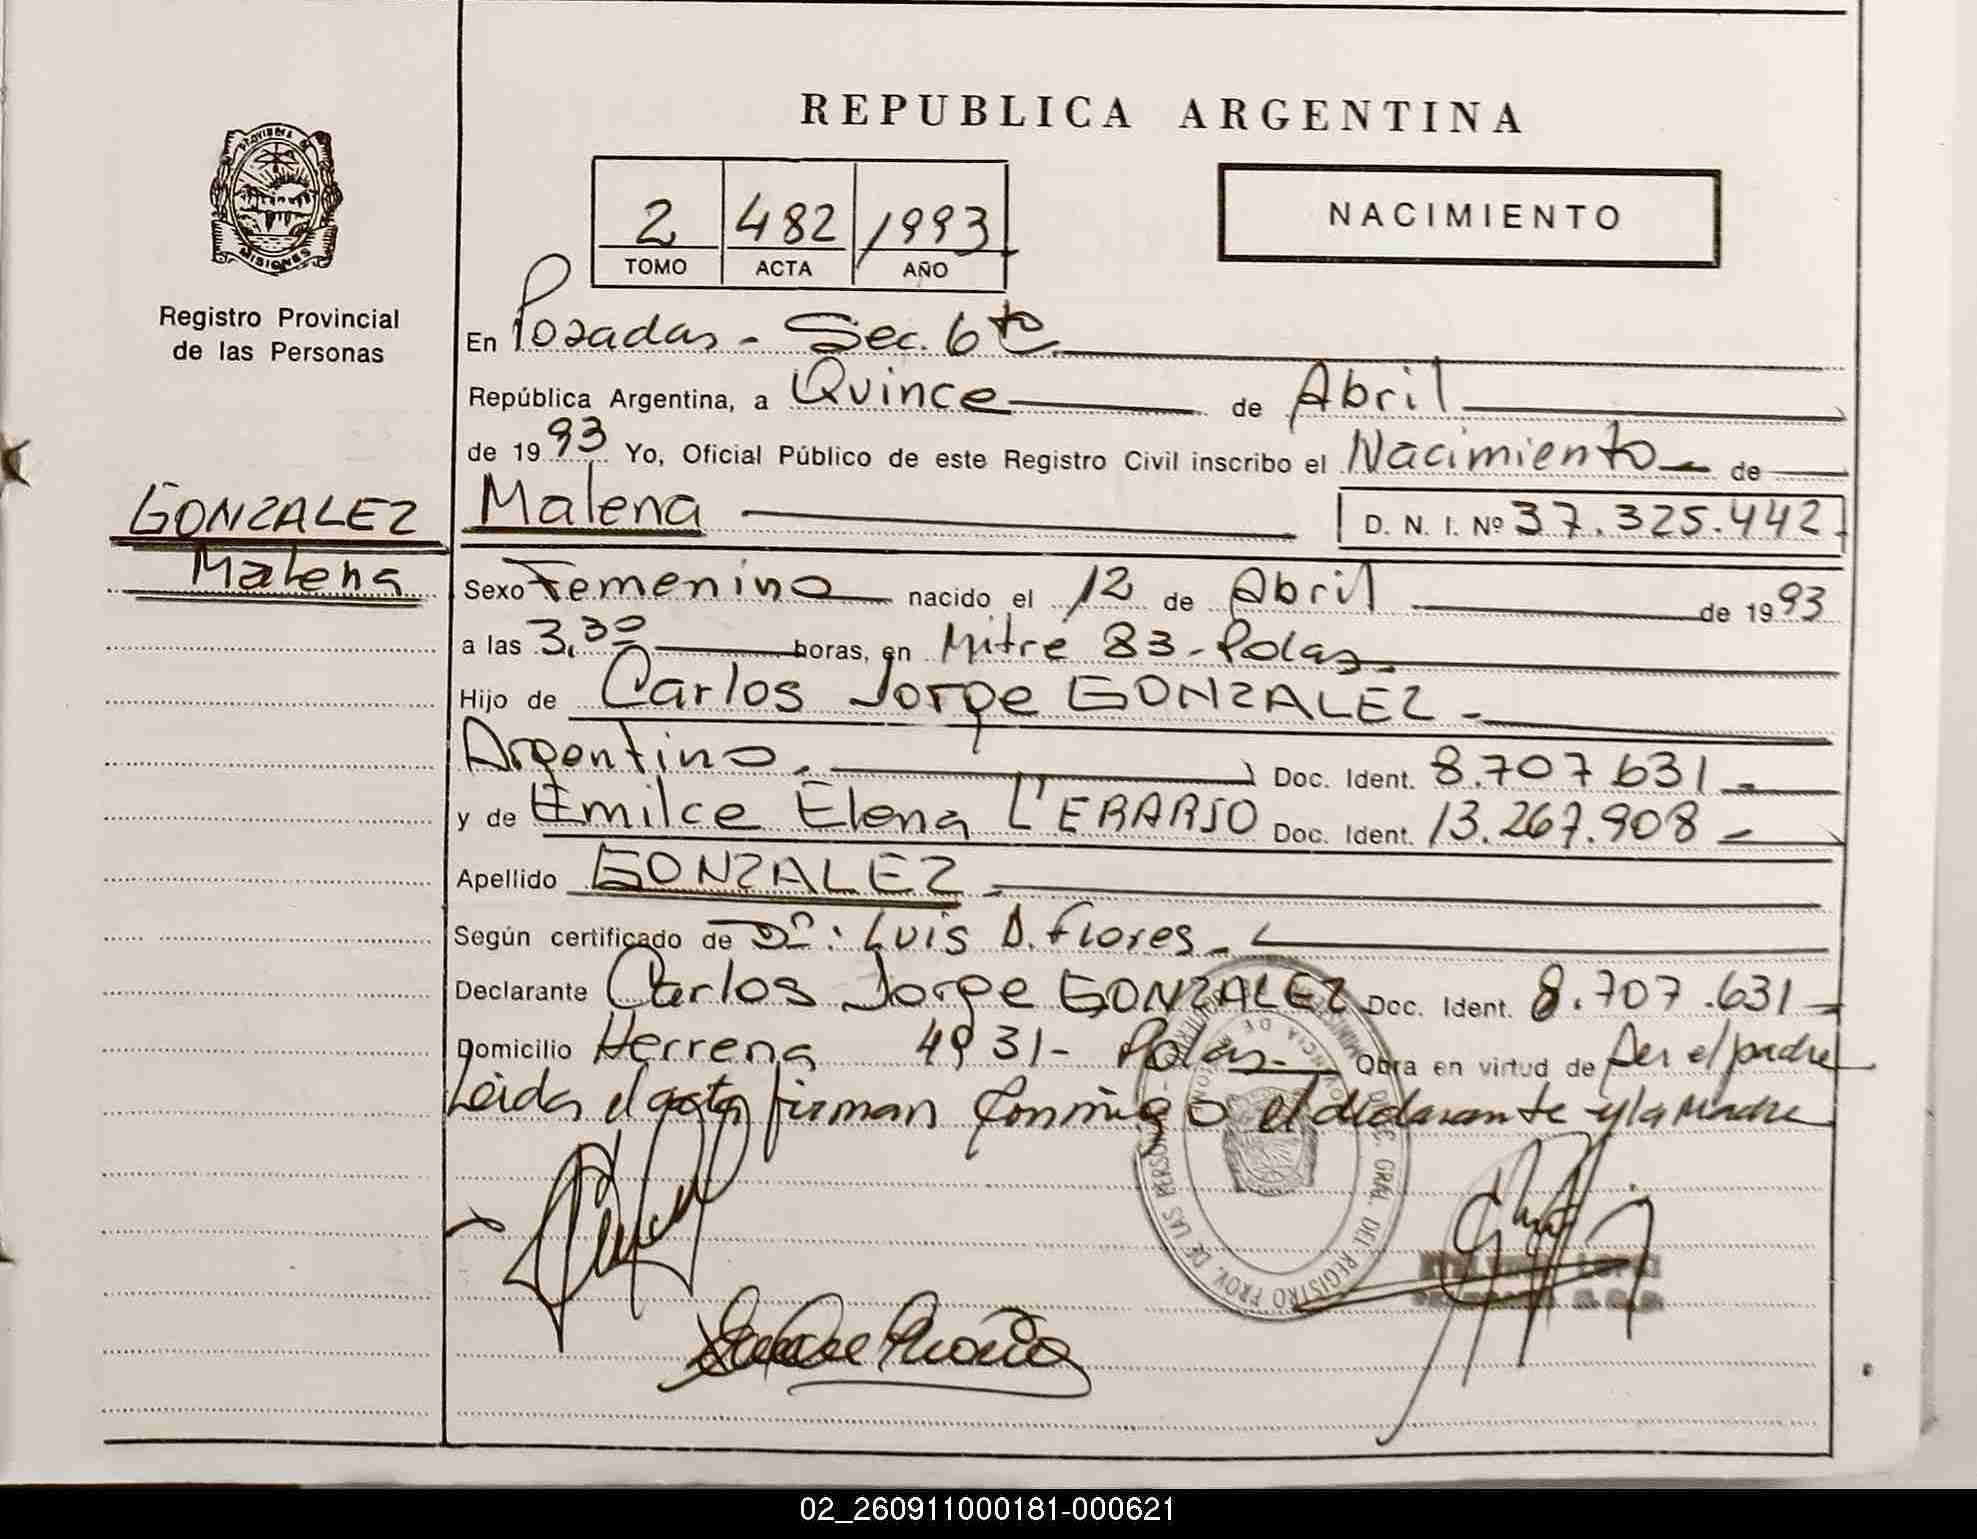 REPUBLICA ARGENTINA
PROVINCIA DE
MISIONES
Registro Provincial
de las Personas
2 482 1993
TOMO ACTA AÑO
NACIMIENTO
En Posadas - Sec. 6ta
República Argentina, a Quince de Abril
de 1993 Yo, Oficial Público de este Registro Civil inscribo el Nacimiento de
GONZALEZ
Malena
Malena D. N. I. Nº 37.325.442
Sexo Femenino nacido el 12 de Abril de 1993
a las 3,30 horas, en Mitre 83 - Pdas.
Hijo de Carlos Jorge GONZALEZ -
Argentino. Doc. Ident. 8.707.631 -
y de Emilce Elena L'ERARIO Doc. Ident. 13.267.908 -
Apellido GONZALEZ -
Según certificado de Dr: Luis D. Flores -
Declarante Carlos Jorge GONZALEZ Doc. Ident. 8.707.631 -
Domicilio Herrera 4931 - Pdas. Obra en virtud de Ser el padre
Leida el acta firman conmigo el declarante y la Madre
GRAL. DEL REGISTRO PROV. DE LAS PERSONAS
02_260911000181-000621